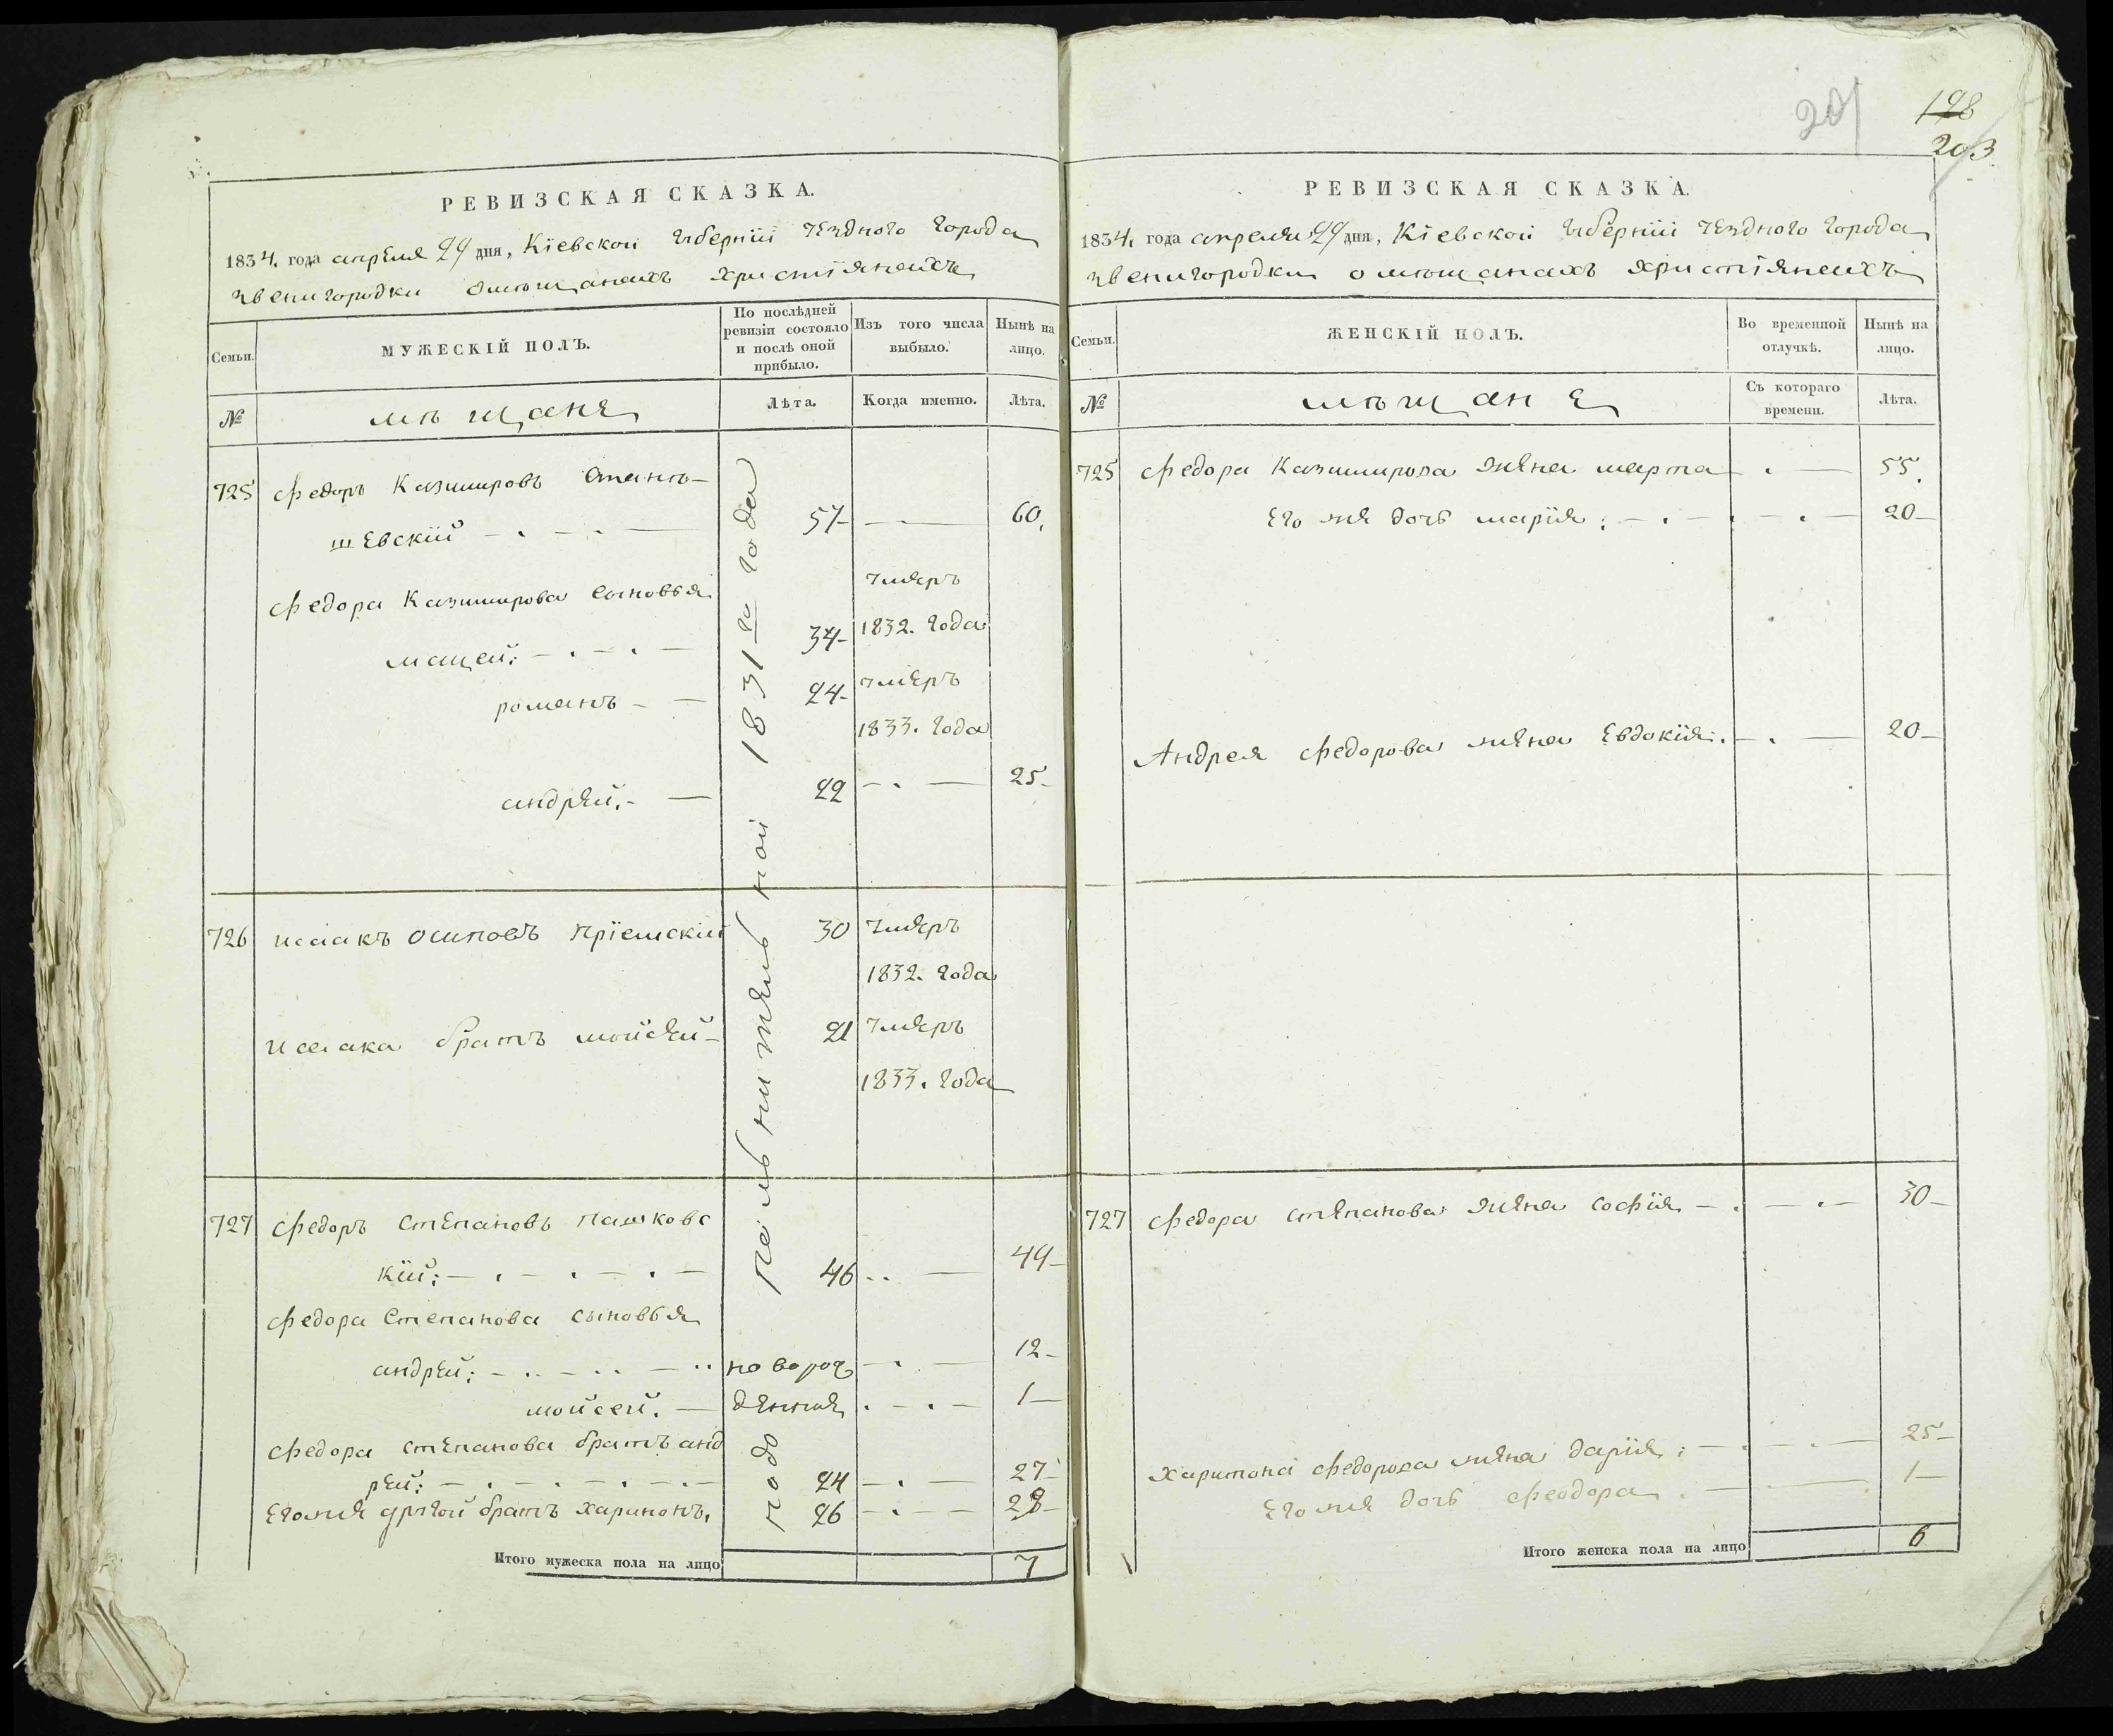 201
198
203
РЕВИЗСКАЯ СКАЗКА.
1834. года апреля 29 дня, Кіевской губерніи уездного города
звенигородки о мѣщанахъ христіянехъ
Семьи.
МУЖЕСКІЙ ПОЛЪ.
По послѣдней ревизіи состояло и послѣ оной прибыло.
Изъ того числа выбыло.
Нынѣ на лицо.
№
мѣщане
Лѣта.
Когда именно.
Лѣта.
По дополнительной 1831 го года
725 федоръ Казимировъ
шевскій 57 60.
федора Казимирова сыновья
мацей: 34 умеръ 1832. года
романъ 24 умеръ 1833. года
андрей. 22 25
726 исаакъ осиповъ 30 умеръ
1832. года
исаака братъ мойсей 21 умеръ
1833. года
727 федоръ степановъ пашковс
кій: 46 49
федора степанова сыновья
андрей: новорож 12
мойсей. денныя 1
федора степанова братъ анд
рей: 24 27
Егоже другой братъ харитонъ, 26 29
Итого мужеска пола на лицо 7
РЕВИЗСКАЯ СКАЗКА.
1834. года апреля 29 дня, Кіевской губерніи уездного города
звенигородки о мѣщанахъ христіянехъ
Семьи.
ЖЕНСКІЙ ПОЛЪ.
Во временной отлучкѣ.
Нынѣ на лицо.
№
мѣщане
Съ котораго времени.
Лѣта.
725 федора Казимирова жена марта 55.
Его же дочь марія: 20
Андрея федорова жена Евдокія: 20
727 федора степанова жена софія 30
харитона федорова жена дарія: 25
Его же дочь феодора. 1
Итого женска пола на лицо 6